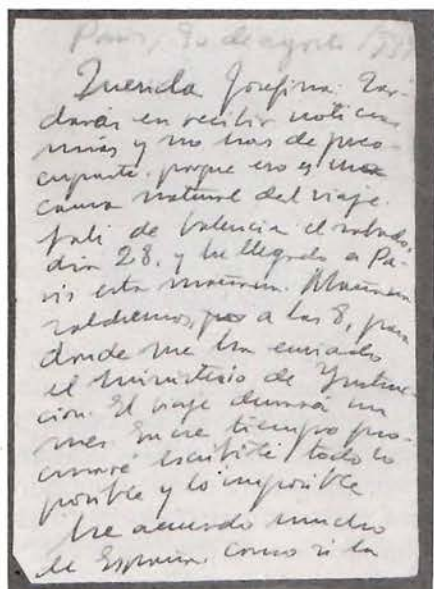 París, 30 de agosto 1937
Querida Josefina: Tar-
darás en recibir noticias
mías y no has de preo-
cuparte, porque eso es
causa natural del viaje.
Salí de Valencia el sábado,
día 28, y he llegado a Pa-
rís esta mañana. Mañana
saldremos, a las 8, para
donde me ha enviado
el ministerio de Instruc-
ción. El viaje durará un
mes. En ese tiempo pro-
curaré escribirte todo lo
posible y lo imposible.
Me acuerdo mucho
de España, como si la